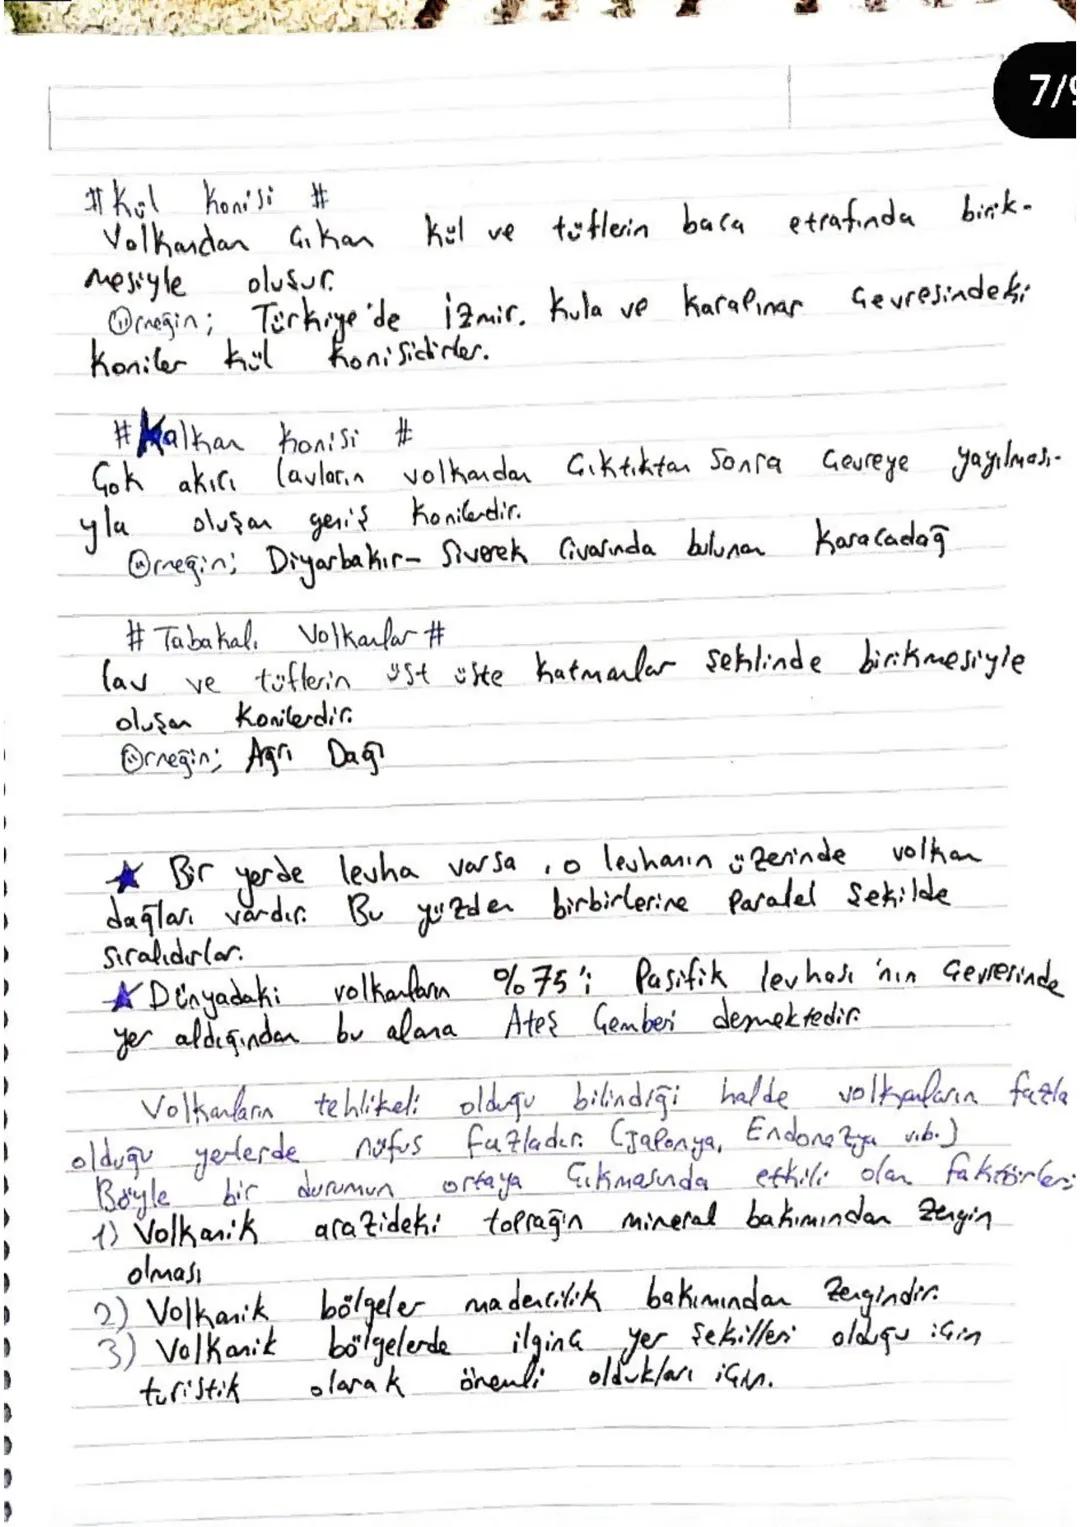 7/9
# Kül konisi #
Volkandan çıkan kül ve tüflerin baca etrafında birik-
mesiyle oluşur.
Örneğin; Türkiye'de İzmir, Kula ve Karapınar çevresindeki
koniler kül konisidirler.
# Kalkan konisi #
Çok akıcı lavların volkandan çıktıktan sonra çevreye yayılması-
yla oluşan geniş konilerdir.
Örneğin; Diyarbakır- Siverek civarında bulunan Karacadağ
# Tabakalı Volkanlar #
lav ve tüflerin üst üste katmanlar şeklinde birikmesiyle
oluşan konilerdir.
Örneğin; Ağrı Dağı
★ Bir yerde levha varsa, o levhanın üzerinde volkan
dağları vardır. Bu yüzden birbirlerine paralel şekilde
sıralıdırlar.
★ Dünyadaki volkanların %75'i Pasifik levhası'nın çevresinde
yer aldığından bu alana Ateş Çemberi demektedir.
Volkanların tehlikeli olduğu bilindiği halde volkanların fazla
olduğu yerlerde nüfus fazladır. (Japonya, Endonezya vb.)
Böyle bir durumun ortaya çıkmasında etkili olan faktörler;
1) Volkanik arazideki toprağın mineral bakımından zengin
olması
2) Volkanik bölgeler madencilik bakımından zengindir.
3) Volkanik bölgelerde ilginç yer şekilleri olduğu için
turistik olarak önemli oldukları için.